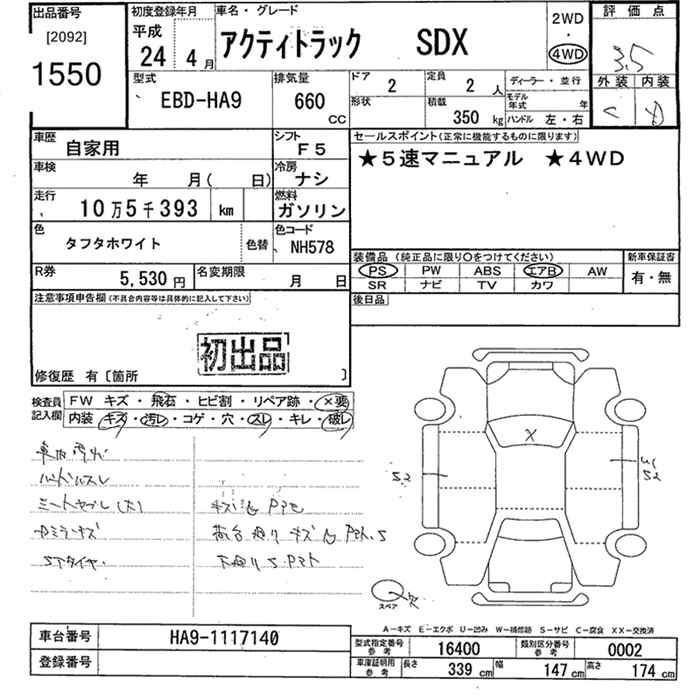 出品番号
[2092]
1550
初度登録年月
平成
24 4月
車名・グレード
アクティトラック SDX
2WD
・
4WD
評価点
3.5
外装 内装
C D
型式
EBD-HA9
排気量
660
CC
ドア
2
定員
2 人
形状
積載
350 kg
ディーラー・並行
モデル年式 年
ハンドル 左・右
車歴
自家用
シフト
F5
車検
年 月( 日)
冷房
ナシ
走行
10万5千393 km
燃料
ガソリン
色
タフタホワイト
色替
色コード
NH578
R券
5,530 円
名変期限
月 日
セールスポイント(正常に機能するものに限ります)
★5速マニュアル ★4WD
装備品 (純正品に限り〇をつけてください)
PS PW ABS エアB AW
SR ナビ TV カワ
新車保証書
有・無
後日品
注意事項申告欄(不具合内容等は具体的に記入して下さい)
初出品
修復歴 有〔箇所 〕
検査員記入欄
FW キズ・飛石・ヒビ割・リペア跡・×要
内装 キズ・汚レ・コゲ・穴・スレ・キレ・破レ
ハンドルスレ
シートヤブレ(大)
STタイヤ
X
S2
U1
S2
スペア
A-キズ E-エクボ U-凹み W-補修跡 S-サビ C-腐食 XX-交換済
車台番号
HA9-1117140
登録番号
型式指定番号参考
16400
類別区分番号参考
0002
車庫証明用参考
長さ 339 cm
幅 147 cm
高さ 174 cm